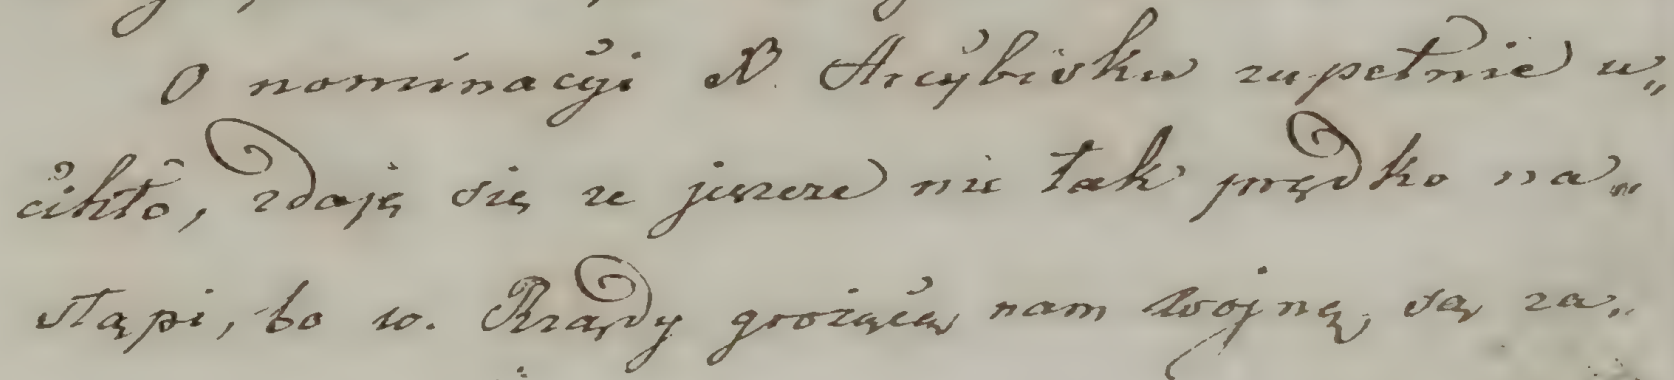 O nominacÿi N. Arcÿbisku zupełnie u„
cihło, zdaję się ze jescze nie tak prędko na„
stąpi, bo w. Rządy grożącą nam wojną, są za„